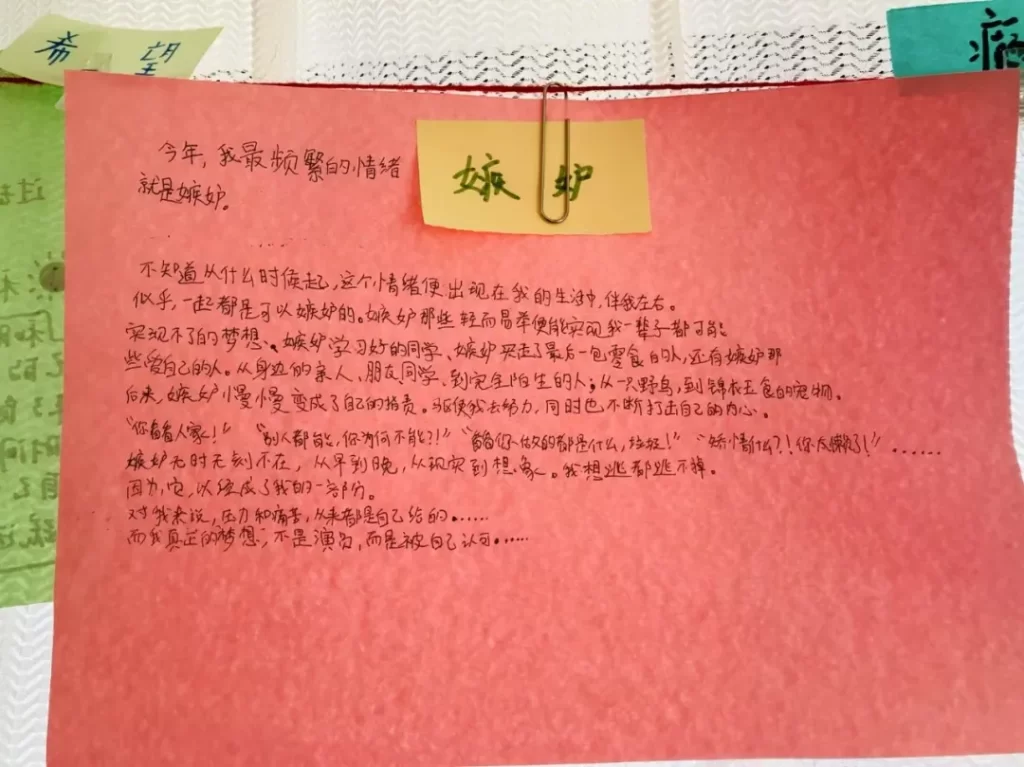 希望
嫉妒
今年，我最频繁的情绪
就是嫉妒。
不知道从什么时候起，这个情绪便出现在我的生活中，伴我左右。
似乎，一起都是可以嫉妒的。嫉妒那些轻而易举便能实现我一辈子都可能
实现不了的梦想、嫉妒学习好的同学、嫉妒买走了最后一包零食的人，还有嫉妒那
些爱自己的人。从身边的亲人、朋友、同学，到完全陌生的人；从一只野鸟，到锦衣玉食的宠物。
后来，嫉妒慢慢变成了自己的指责。驱使我去努力，同时也不断打击自己的内心。
“你看看人家！” “别人都能，你为何不能？！” “看看你做的都是什么，垃圾！” “矫情什么？！你太懒了！” ……
嫉妒无时无刻不在，从早到晚，从现实到想象。我想逃都逃不掉。
因为，它，以经成了我的一部分。
对我来说，压力和痛苦，从来都是自己给的……
而我真正的梦想，不是演员，而是被自己认可……